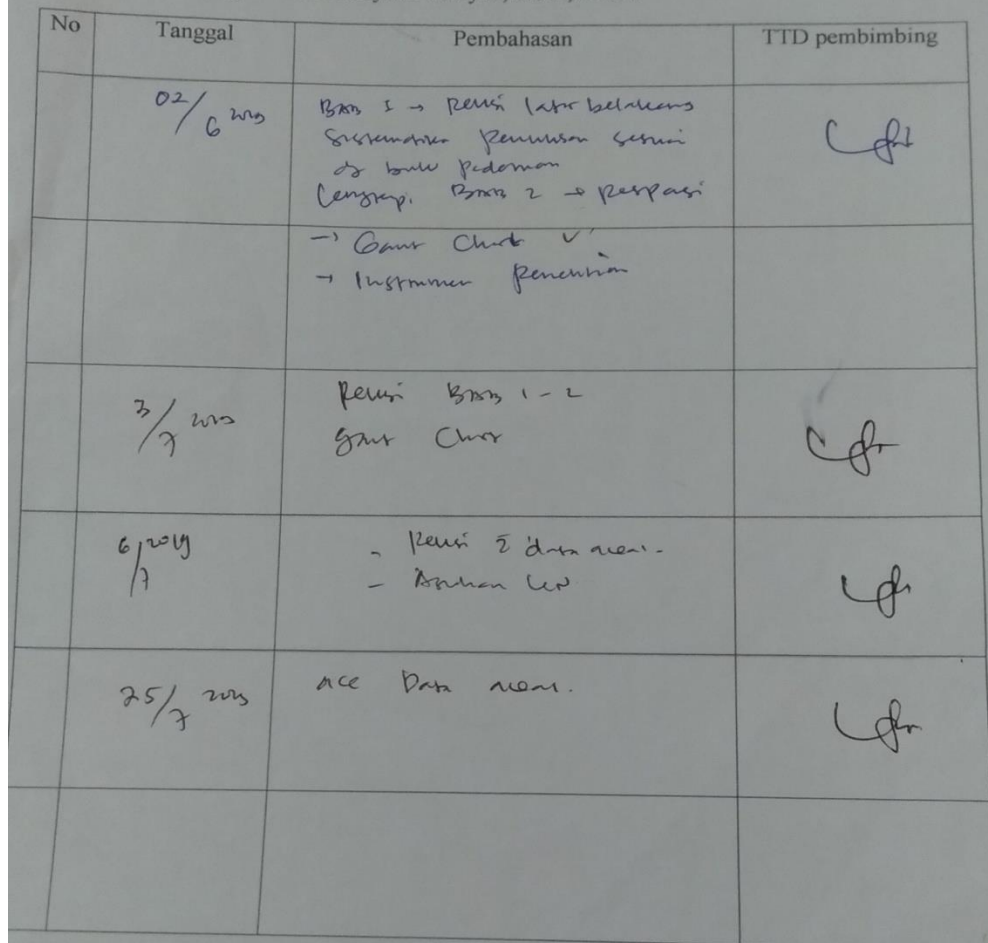 No Tanggal Pembahasan TTD pembimbing
02/6 BAB 1 → Revisi latar belakang
Sistematika Penulisan sesuai
buku Pedoman
Lengkapi BAB 2 →
→ Gant Chart ✓
→ Instrumen Penelitian
3/7 Revisi BAB 1-2
Gant Chart
6/7 2019 - Revisi data
- Asuhan
25/7 acc Data